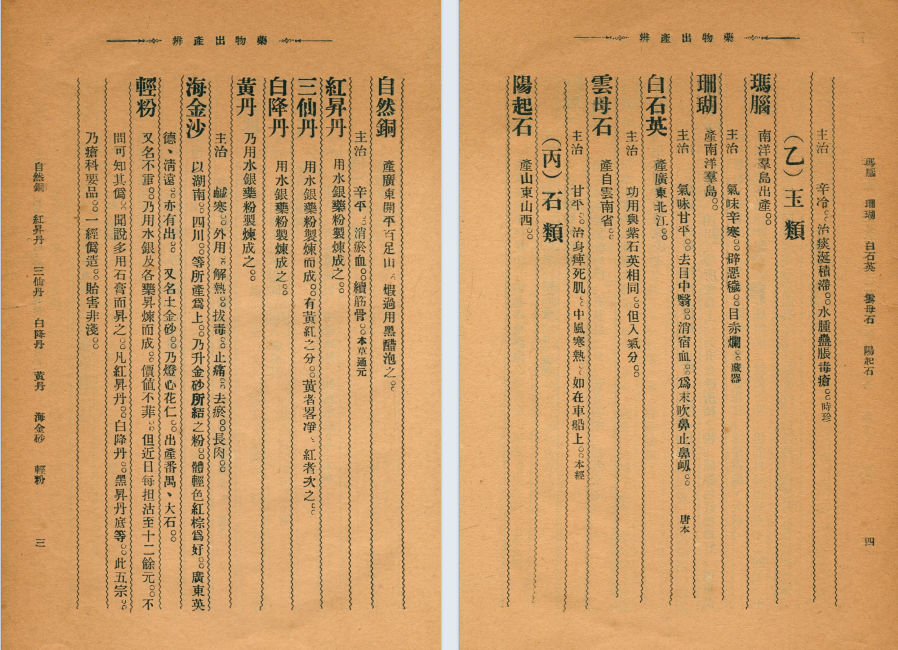 藥物出產辨
自然銅 產廣東開平百足山、煅過用黑醋泡之。
主治 辛平、消瘀血。續筋骨。本草通元
紅昇丹 用水銀藥粉製煉成之。
三仙丹 用水銀藥粉製煉而成。有黃紅之分。黃者畧凈、紅者次之。
白降丹 用水銀藥粉製煉成之。
黃丹 乃用水銀藥粉製煉成之。
主治 鹹寒。外用。解熱。拔毒。止痛。去瘀。長肉。
海金沙 以湖南。四川。等所產爲上。乃升金砂所結之粉。體輕色紅棕爲好。廣東英
德、淸遠。亦有出。又名土金砂。乃燈心花仁。出產番禺、大石。
輕粉 又名不重。乃用水銀及各藥昇煉而成。價值不菲。但近日每担沽至十二餘元。不
問可知其僞。聞說多用石膏而昇之。凡紅昇丹。白降丹。黑昇丹底等。此五宗。
乃瘡科要品。一經僞造。貽害非淺。
自然銅 紅昇丹 三仙丹 白降丹 黃丹 海金砂 輕粉 三
藥物出產辨
瑪腦 珊瑚 白石英 雲母石 陽起石 四
主治 辛冷。治痰涎積滯。水腫蠱脹毒瘡。時珍
（乙）玉類
瑪腦 南洋羣島出產。
主治 氣味辛寒。辟惡穢。目赤爛。藏器
珊瑚 產南洋羣島。
主治 氣味甘平。去目中醫。消宿血。爲末吹鼻止鼻衂。唐本
白石英 產廣東北江。
主治 功用與紫石英相同。但入氣分。
雲母石 產自雲南省。
主治 甘平。治身痺死肌。中風寒熱、如在車船上。本經
（丙）石類
陽起石 產山東山西。